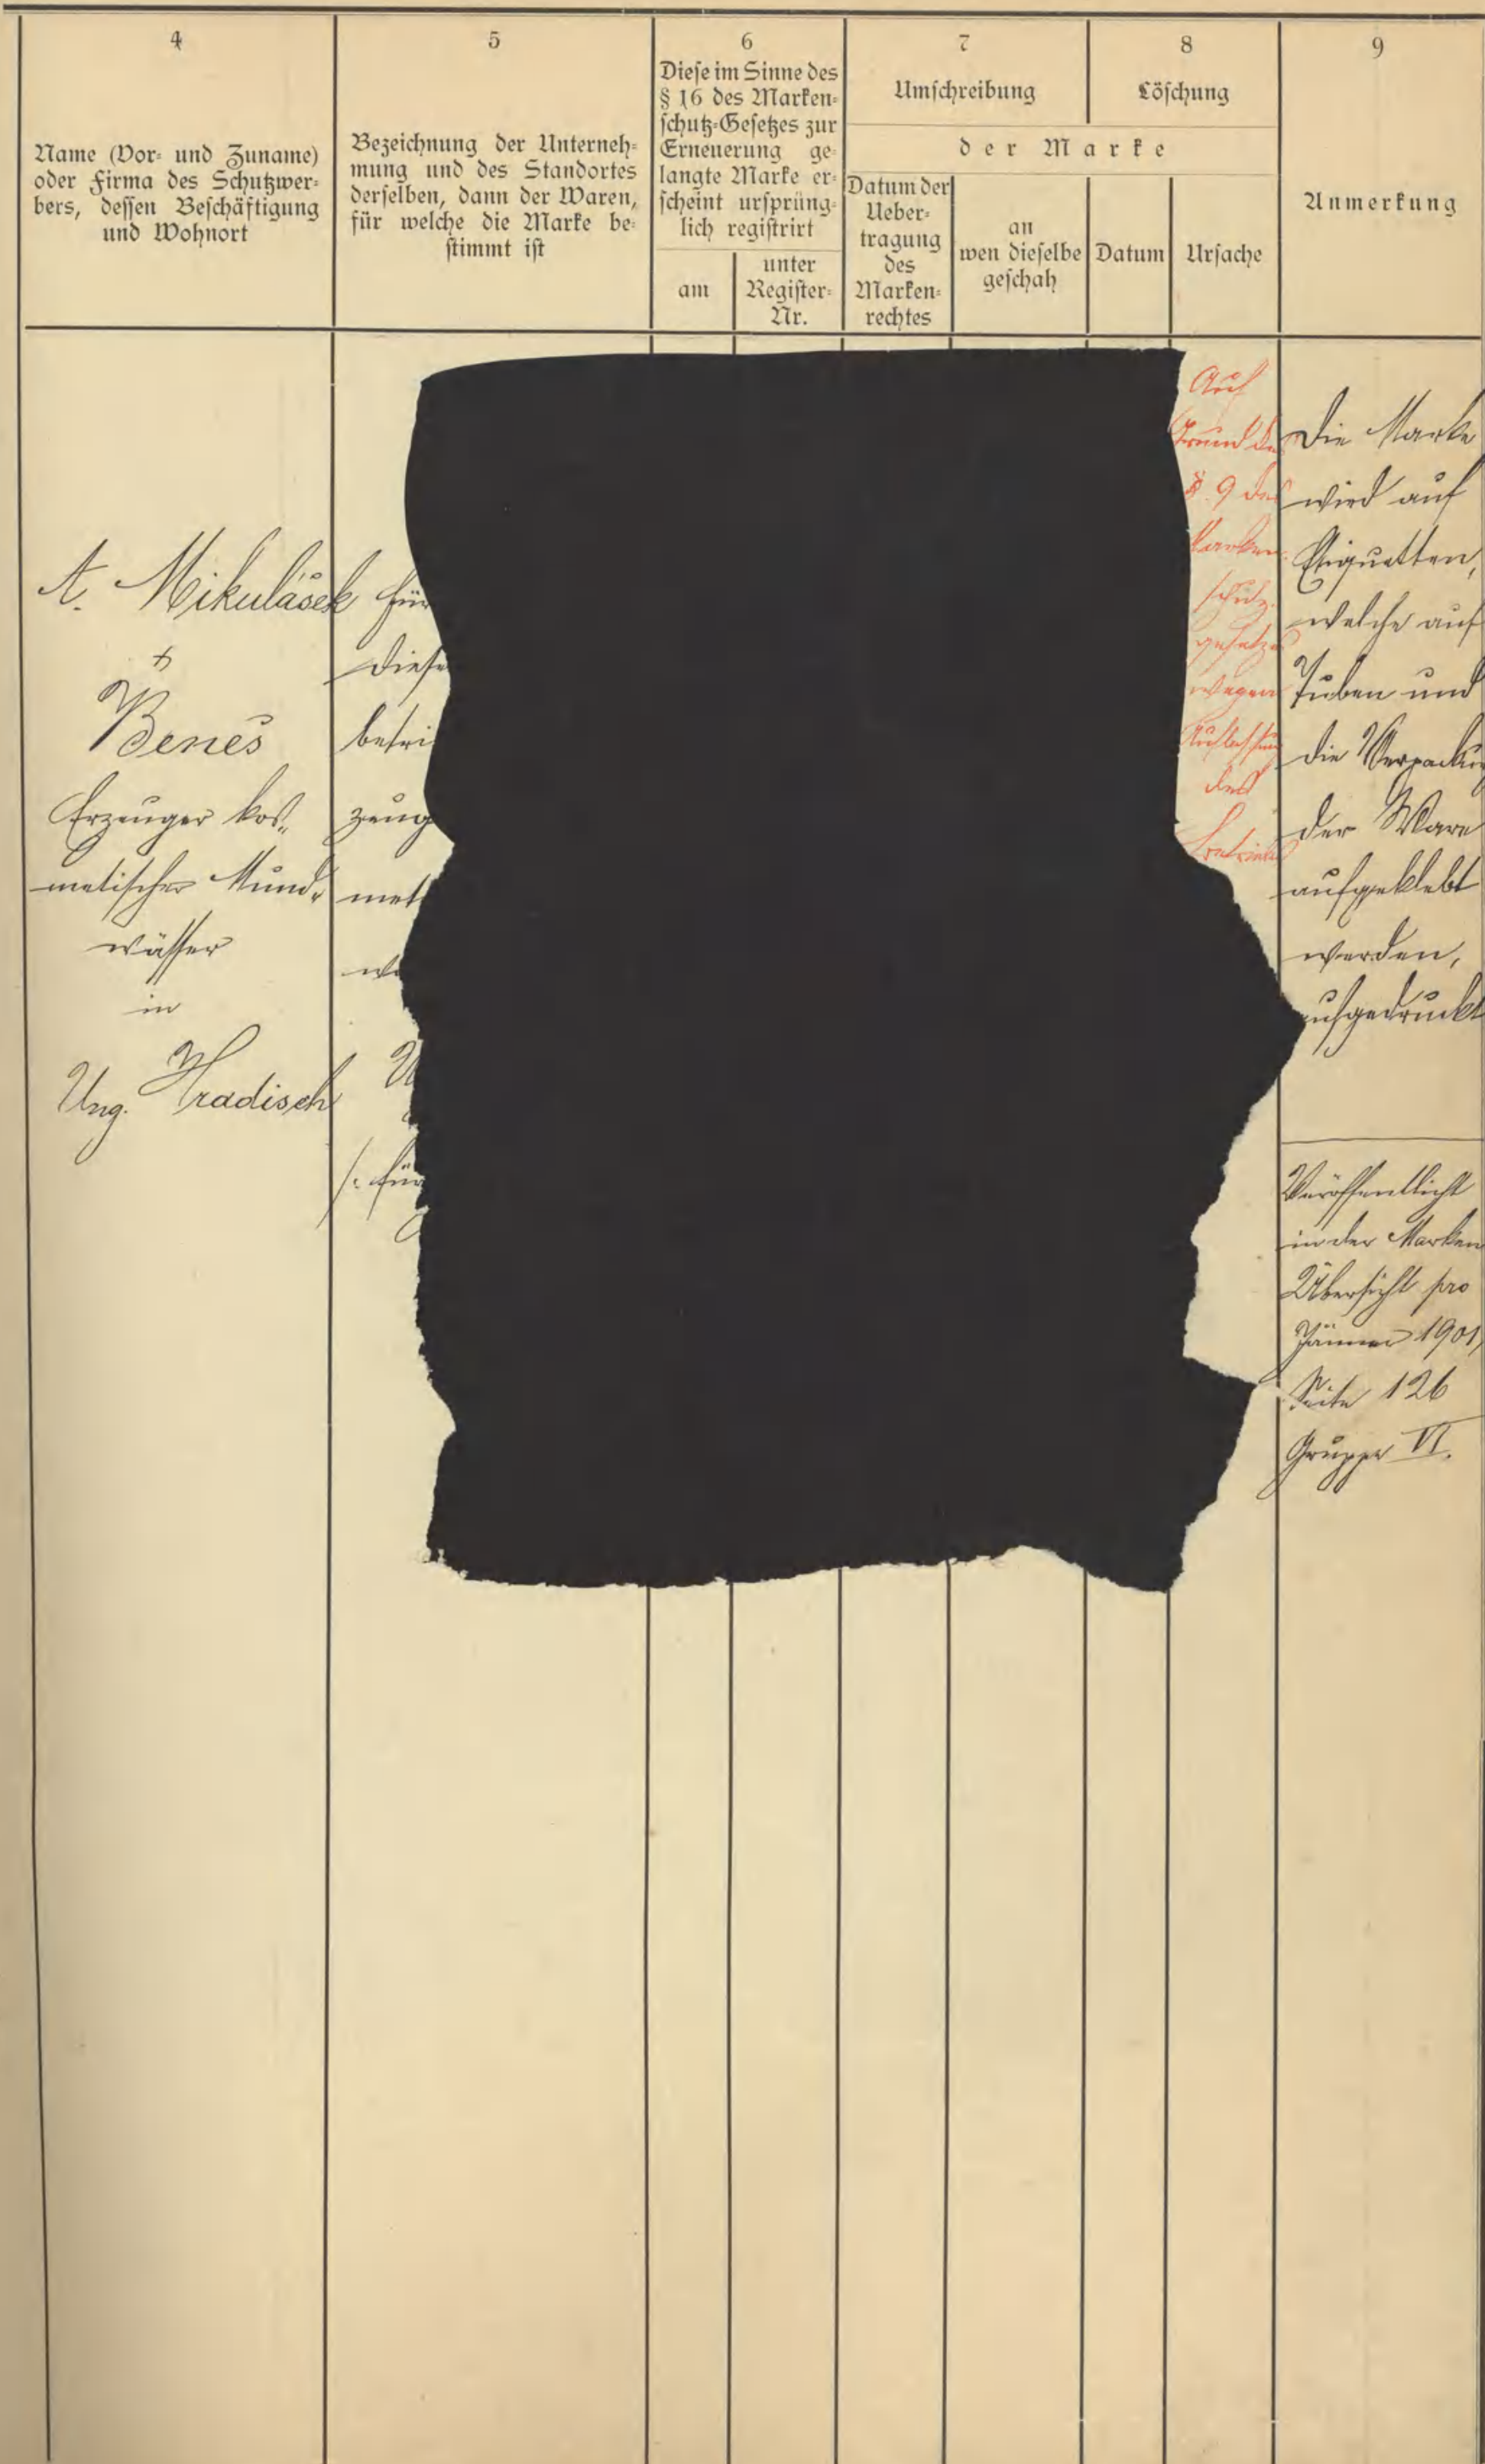 4
Name (Vor- und Zuname)
oder Firma des Schutzwer-
bers, dessen Beschäftigung
und Wohnort
5
Bezeichnung der Unterneh-
mung und des Standortes
derselben, dann der Waren,
für welche die Marke be-
stimmt ist
6
Diese im Sinne des
§ 16 des Marken-
schutz-Gesetzes zur
Erneuerung ge-
langte Marke er-
scheint ursprüng-
lich registrirt
am
unter
Register-
Nr.
7
Umschreibung
8
Löschung
der Marke
Datum der
Ueber-
tragung
des
Marken-
rechtes
an
wen dieselbe
geschah
Datum
Ursache
9
Anmerkung
A. Mikulášek
&
Beneš
Erzeuger kos„
metischer Mund„
wässer
in
Ung. Hradisch
für
diese
betri
zeug
met
w
U
/: für
Auf
Grund des
§. 9 des
Marken
schutz
gesetzes
wegen
Auflassung
des
Betriebes
Die Marke
wird auf
Etiquetten,
welche auf
Tuben und
die Verpackung
der Ware
aufgeklebt
werden,
aufgedruckt
Veröffentlicht
in der Marken
Übersicht pro
Jänner 1901,
Seite 126
Gruppe VI.